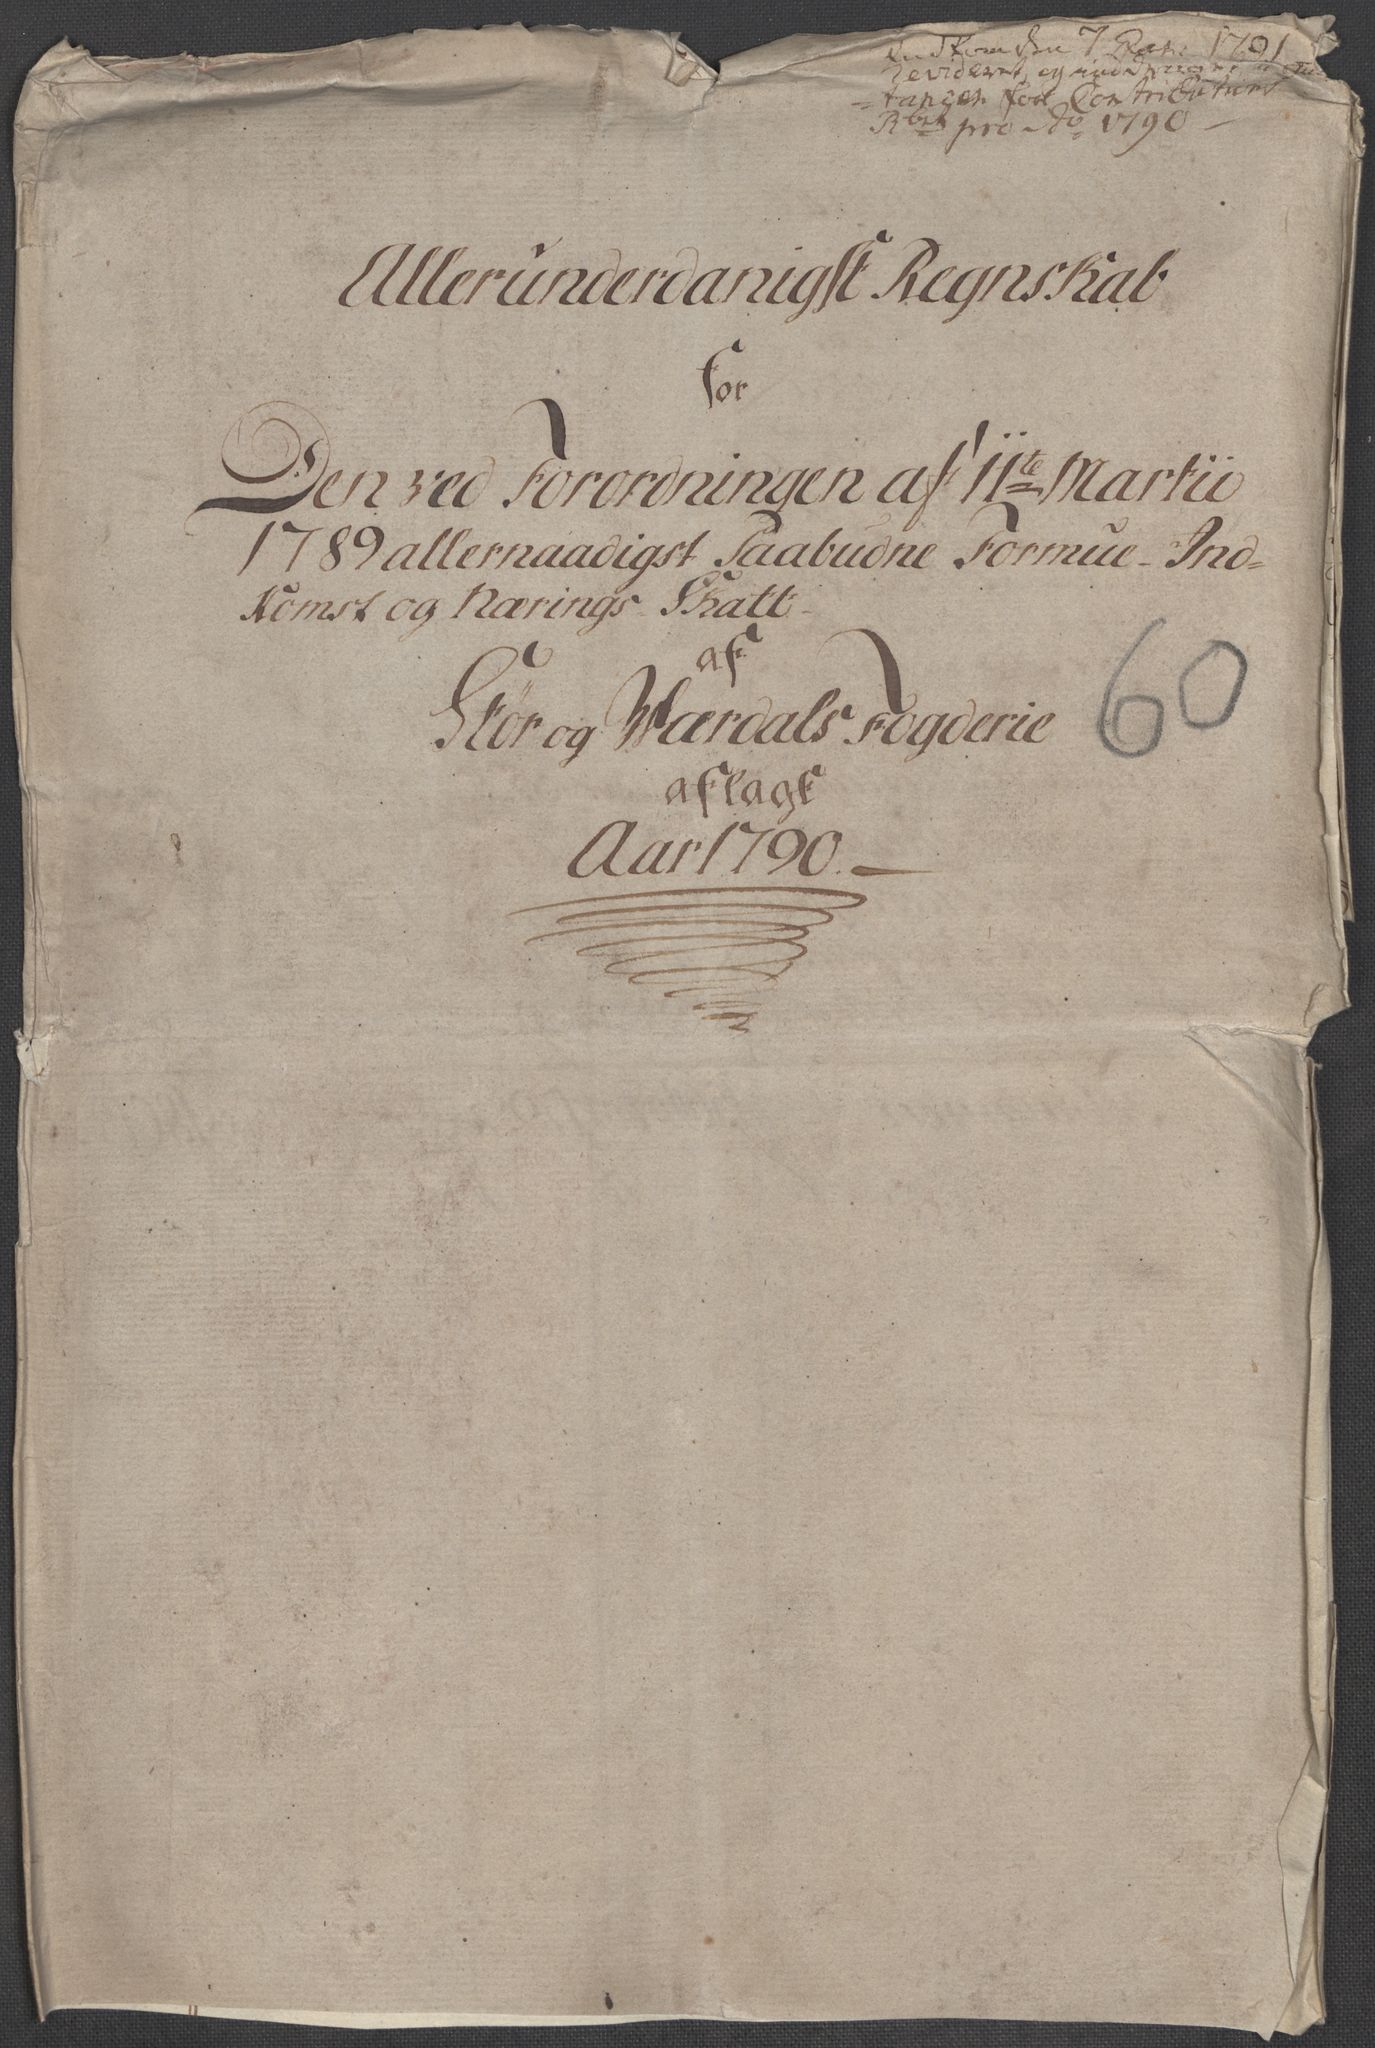 7 1791
Revideret, og
tancen for Contributions
pro Ao 1790
Allerunderdanigst Regnskab
for
Den ved Forordningen af 11te Martii
1789 allernaadigst Paabudne Formue- Ind=
komst og Nærings Skatt
af
Stør og Wærdals Fogderie
60
aflagt
Aar 1790.